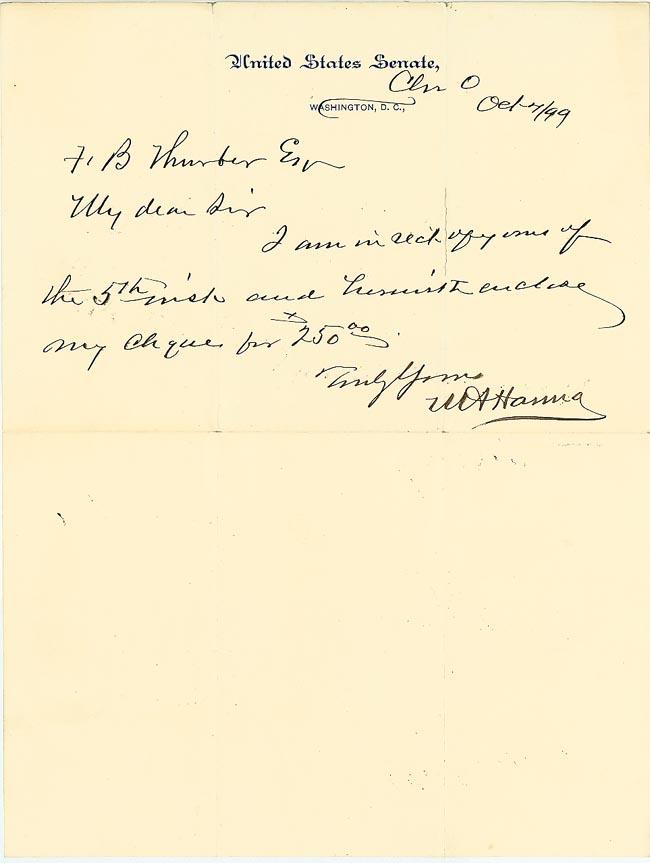 United States Senate,
Clev O
WASHINGTON, D. C., Oct 7/99
F. B Thurber Esq
My dear Sir
I am in rect of yours of
the 5th inst and herewith enclose
my cheque for $250 00
Truly Yours
M A Hanna